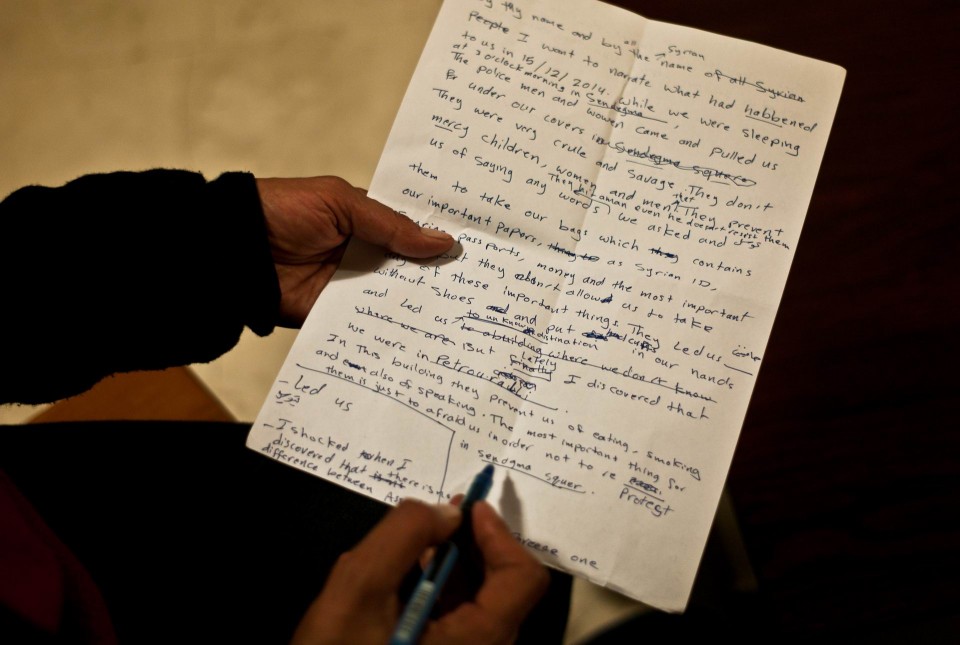 my name and by all the name of all Syrian Syrian
People I want to narate what had habbened
to us in 15/12/2014. while we were sleeping
at 3 o'clock morning in Sendegma
The police men and women came and pulled us
under our covers in Sendegma square
They were very crule and savage. They don't
mercy children, women and men. They prevent
us of saying any words we asked and
them to take our bags which they contains
our important Papers, as Syrian ID,
passports, money and the most important
they allowed us to take
of these important things. They Led us
without shoes and and put in our hands
and Led us to unknown distination
to abuilding where we don't know
where we are. But Lately Finally I discovered that
we were in Petrou ralli.
In this building they prevent us of eating, smoking
and also of speaking. The most important thing for
them is just to afraid us in order not to re Protest
in sendgma squer.
- Led us
- I shocked when I
discovered that there is no
difference between
Greece one